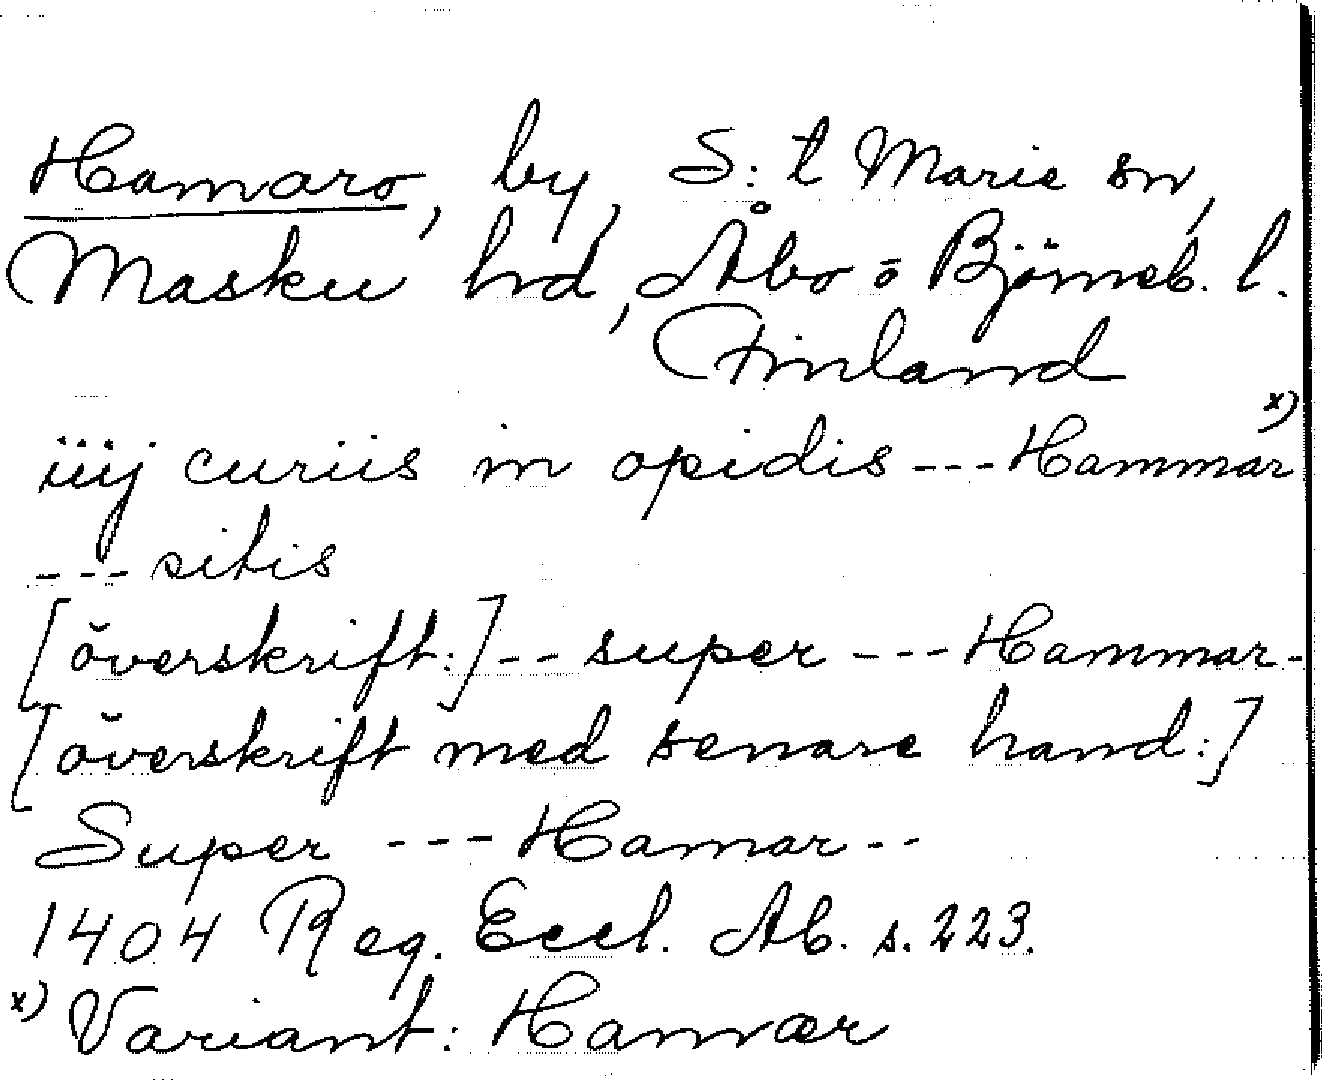 Hamaro, by, S:t Marie sn,
Masku hd, Åbo o Björneb. l.
Finland
iiij curiis in opidis --- Hammar x)
--- sitis
[överskrift:] -- super --- Hammar -
[överskrift med senare hand:]
Super --- Hamar --
1404 Reg. Eccl. Ab. s. 223.
x) Variant: Hamar